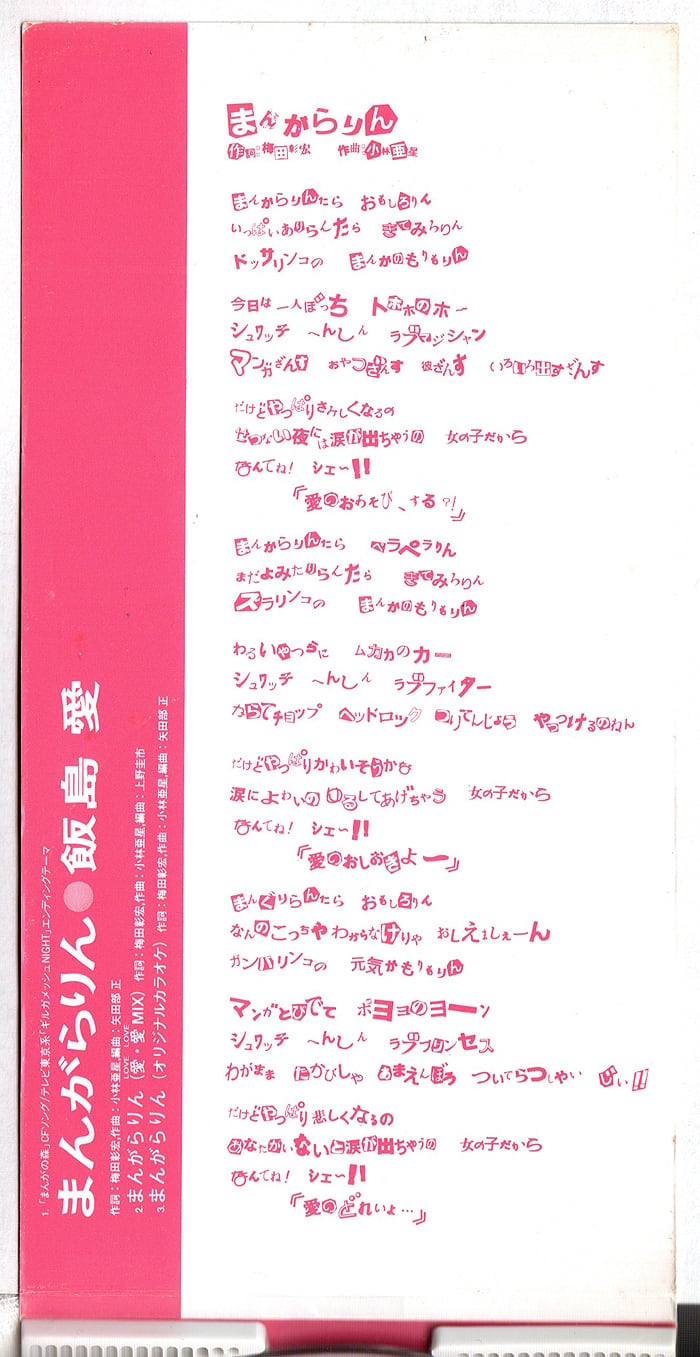 まんがらりん
作詞:梅田彰宏 作曲:小林亜星
まんがらりんたら おもしろりん
いっぱいありらんたら きてみろりん
ドッサリンコの まんがのもりもりん
今日は 一人ぼっち トホホのホー
シュワッチ へんしん ラブマジシャン
マンガざんす おやつざんす 彼ざんす いろいろ出すざんす
だけどやっぱりさみしくなるの
せつない夜には涙が出ちゃうの 女の子だから
なんてね! シェー!!
『愛のおあそび、する?!』
まんがらりんたら ペラペラりん
まだよみたりらんたら きてみろりん
スラリンコの まんがのもりもりん
わるいやつらに ムカカのカー
シュワッチ へんしん ラブファイター
からてチョップ ヘッドロック つりてんじょう やっつけるのねん
だけどやっぱりかわいそうかな
涙によわいの ゆるしてあげちゃう 女の子だから
なんてね! シェー!!
『愛のおしおきよー』
まんぐりらんたら おもしろりん
なんのこっちゃわからなけりゃ おしえましぇーん
ガンバリンコの 元気がもりもりん
マンガとびでて ボヨヨのヨーン
シュワッチ へんしん ラブプリンセス
わがまま たかびしゃ あまえんぼう ついてらっしゃい びぃ!!
だけどやっぱり悲しくなるの
あなたがいないと涙が出ちゃうの 女の子だから
なんてね! シェー!!
『愛のどれいよ…』
1.「まんがの森」CFソング/テレビ東京系「ギルガメッシュNIGHT」エンディングテーマ
まんがらりん●飯島 愛
作詞:梅田彰宏,作曲:小林亜星,編曲:矢田部 正
2.まんがらりん(愛・愛 MIX)作詞:梅田彰宏,作曲:小林亜星,編曲:上野圭市
LOVE LOVE
3.まんがらりん(オリジナルカラオケ)作詞:梅田彰宏,作曲:小林亜星,編曲:矢田部 正